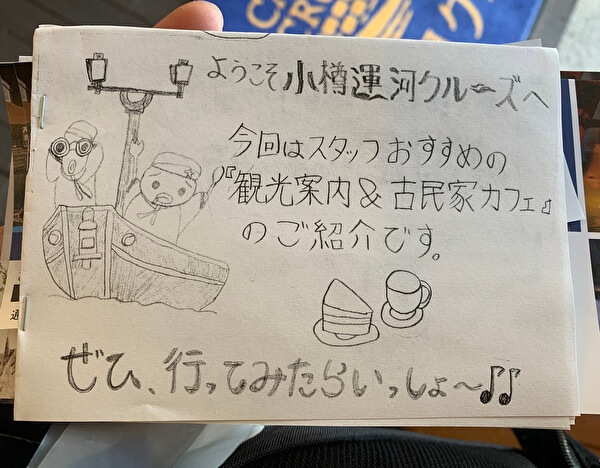 ようこそ小樽運河クルーズへ
今回はスタッフおすすめの
『観光案内＆古民家カフェ』
のご紹介です。
ぜひ、行ってみたらいっしょ〜♪♪